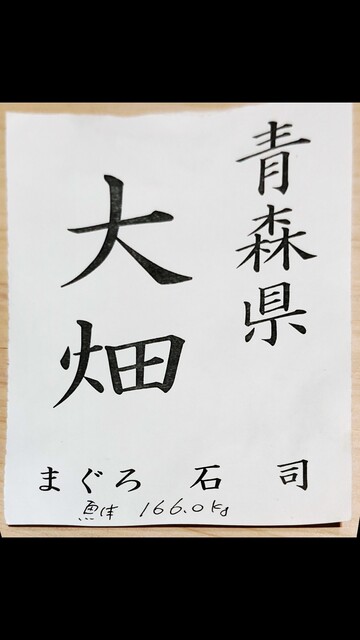 青森県
大畑
まぐろ 石 司
魚体 166.0kg